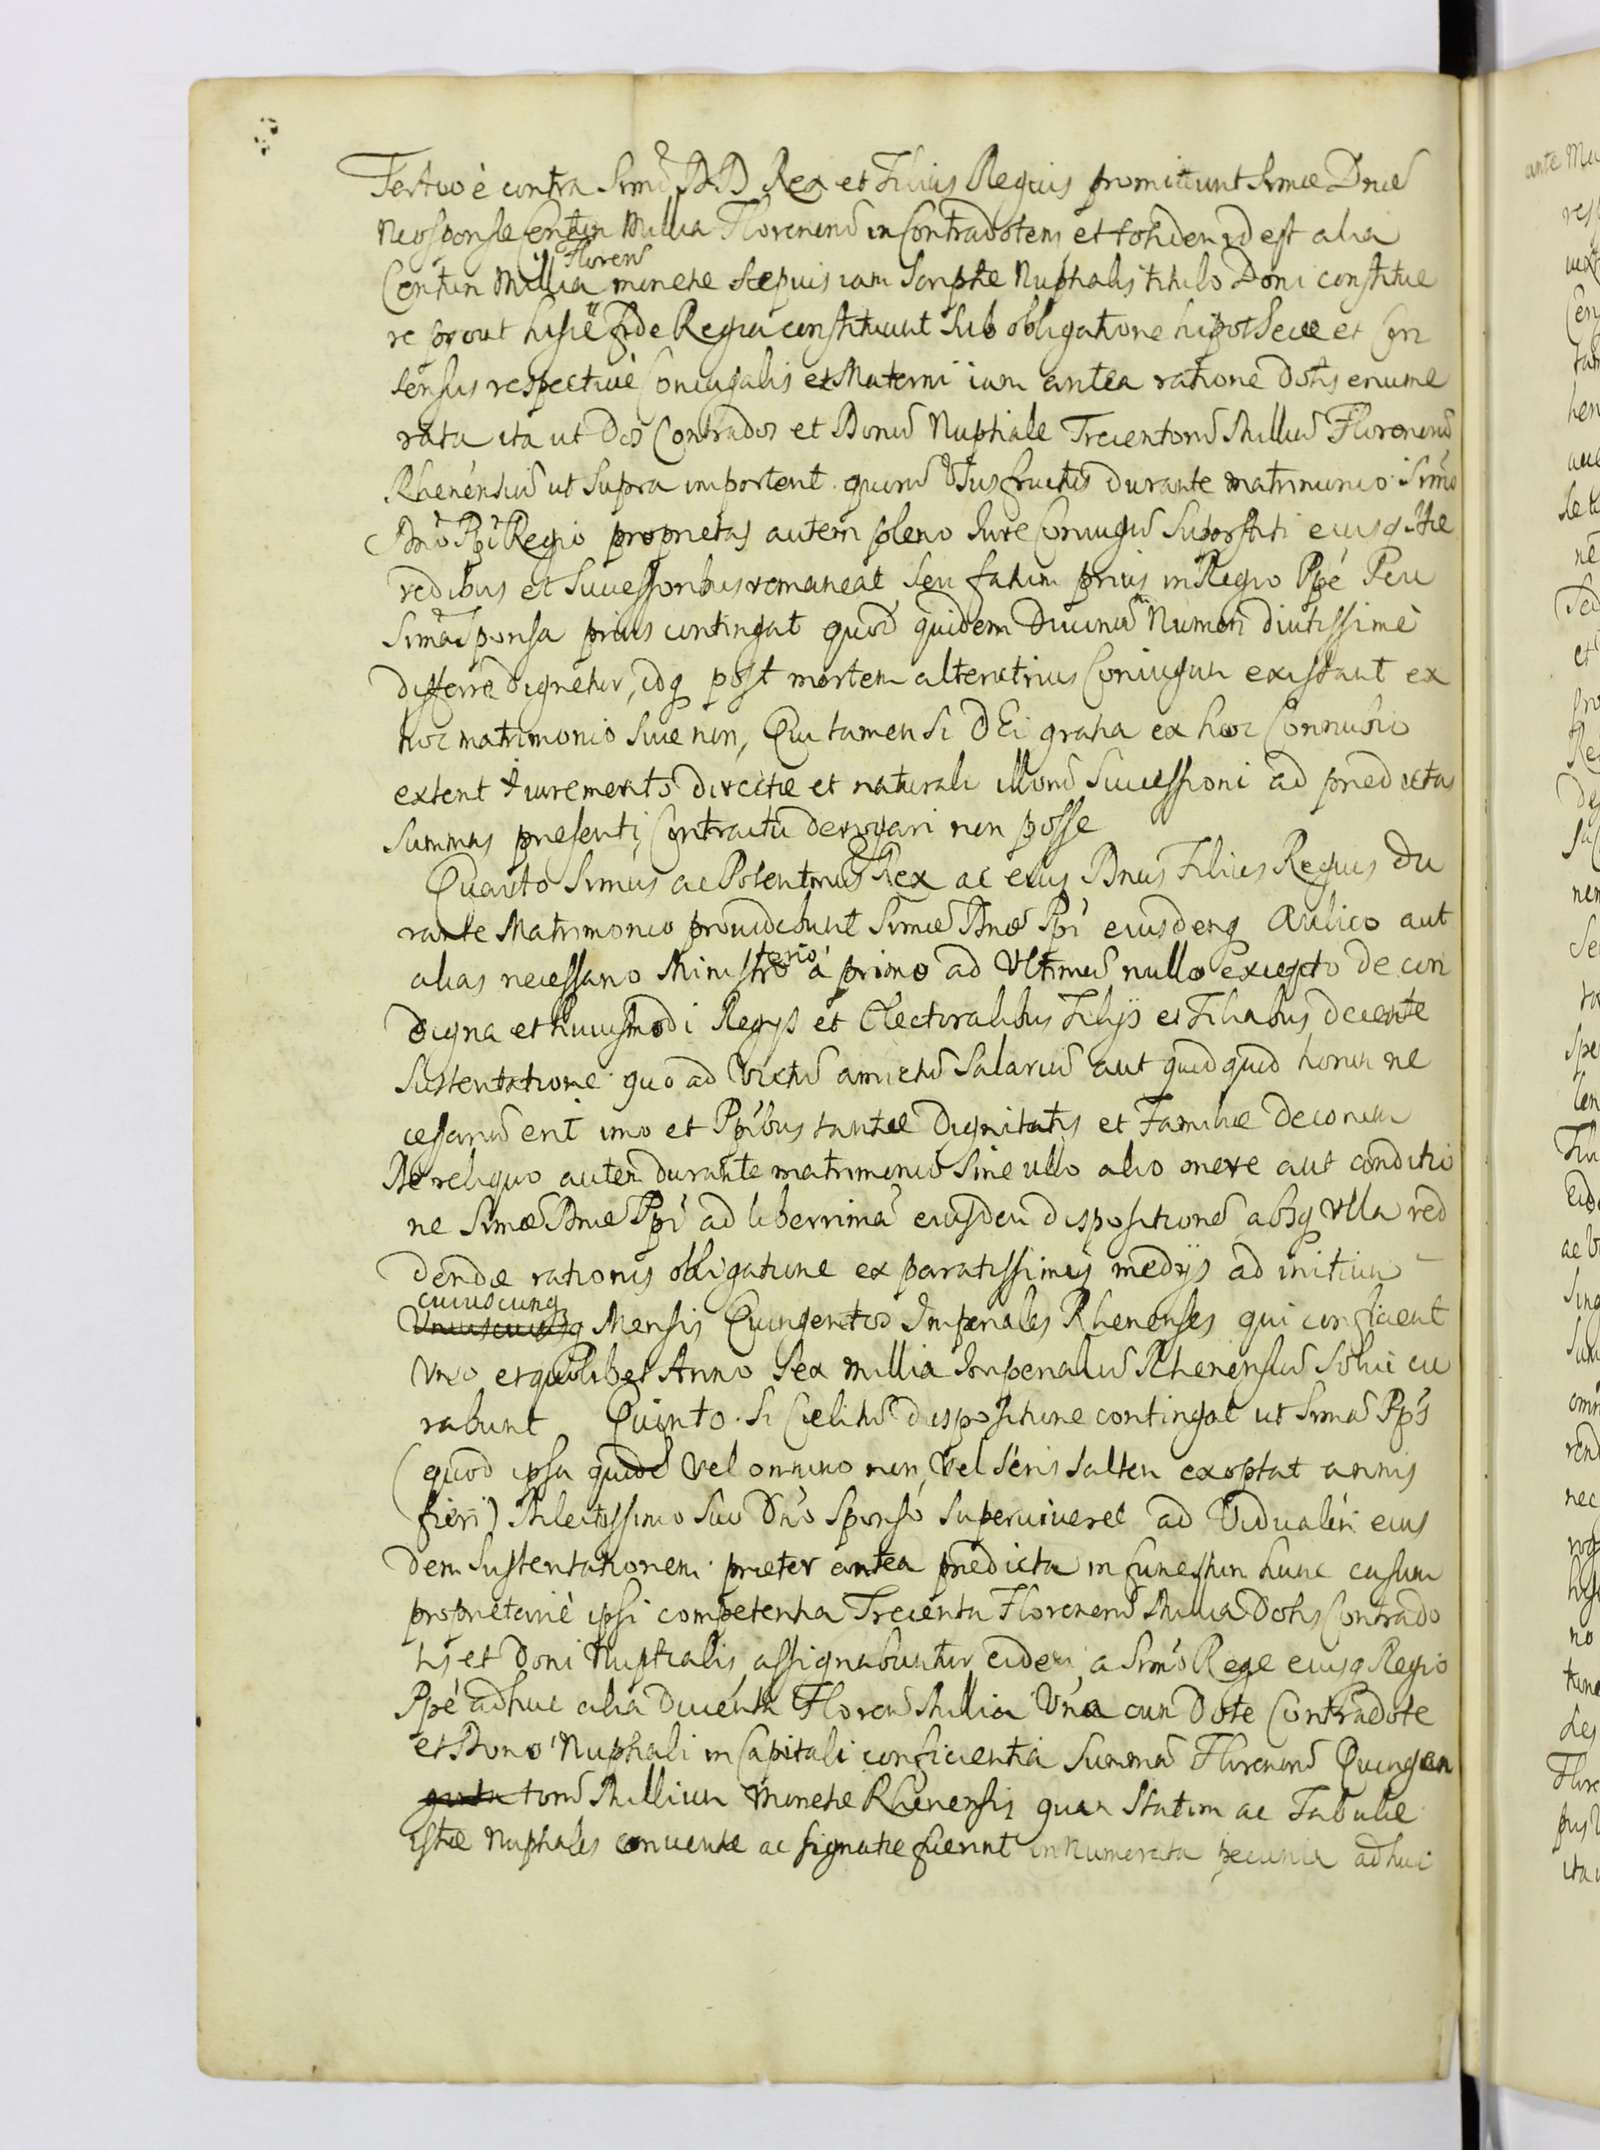 Tertio è contra Srmi DD Rex et Filius Regius promittunt Srmæ Dnæ
Neosponsæ Centum Millia Florenorũ in Contradotem et totidem id est alia
Centum Millia Florenũ monetæ sæpius iam scriptæ Nuptialis titulo Doni constitue
re prout hisce fide Regia constituunt sub obligatione hipothecæ et Con
sensus respectivè Coniugalis et Materni iam antea ratione dotis enume
rata ita ut Dos Contrados et Donũ Nuptiale Trecentorũ Milliũ Florenorũ
Rhenensiũ ut supra importent quorũ Vsusfructus durante matrimonio Srmo
Dnõ Ppi Regio proprietas autem pleno Iure Coniugũ Superstiti eiusq Hæ
redibus et Successoribus remaneat seu fatum prius in Regio Ppe seu
Srma Sponsa prius contingat quod quidem Divinũ Numen diutissimè
differre dignetur, idq post mortem alterutrius Coniugum existant ex
hoc matrimonio siue non, Qui tamen si DEi gratia ex hoc Connubio
extent iuremerito directæ et naturali illorũ Successioni ad prædictas
summas præsenti Contractu derogari non posse
Quarto Srmus ac Potentmus Rex ac eius Dnus Filius Regius Du
rante Matrimonio providebunt Srmæ Dnæ Ppi eiusdemq Aulico aut
alias necessario Ministerio à primo ad Vltimũ nullo excepto de con
digna et huiusmodi Regijs et Electoralibus Filijs et Filiabus decente
sustentatione quo ad Victũ amictũ Salariũ aut quidquid horum ne
cessariũ erit imo et Ppibus tantæ Dignitatis et Familiæ decorum
De reliquo autem durante matrimonio sine ullo alio onere aut conditio
ne Srmæ Dnæ Ppi ad liberrimã eiusdem dispositionẽ absq Vlla red
dendæ rationis obligatione ex paratissimis medijs ad initium
Vniuscuiusq cuiuscunq Mensis Quingentos Imperiales Rhenenses qui conficient
Vno et quolibet Anno Sex millia Imperialiũ Rhenensiũ solui cu
rabunt Quinto. Si Cælitũ dispositione contingat ut Srma Pps
(quod ipsa quidẽ Vel omnino non, Vel seris saltem exoptat annis
fieri) Dilectissimo Suo Dnõ Sponso superviveret ad Vidualem eius
dem sustentationem præter antea prædicta in funestum hunc casum
proprietariè ipsi competentia Trecenta Florenorũ Millia Dotis Contrado
tis et Doni Nuptialis, assignabuntur eidem a Srmo Rege eiusq Regio
Ppe adhuc alia Ducenta Florenũ Millia Vna cum Dote Contradote
et Dono Nuptiali in Capitali conficientia summã Florenorũ Quingen
torũ Millium Monetæ Rhenensis quam statim ac Tabulæ
istæ Nuptiales conventæ ac signatæ fuerint in Numerata pecunia adhuc